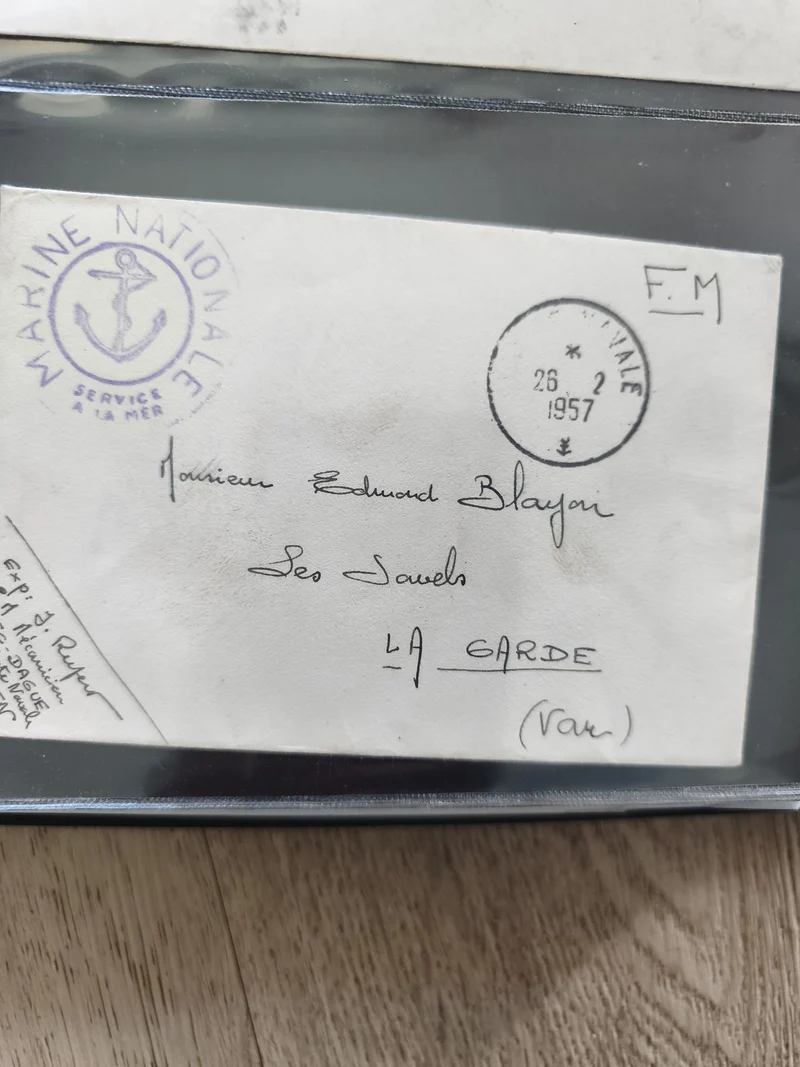 MARINE NATIONALE
SERVICE
A LA MER
F.M
VALE
26 2
1957
Monsieur Edmond Blayon
Les Savels
LA GARDE
(Var)
EXP: J.
Mécanicien
DAGUE
Navale